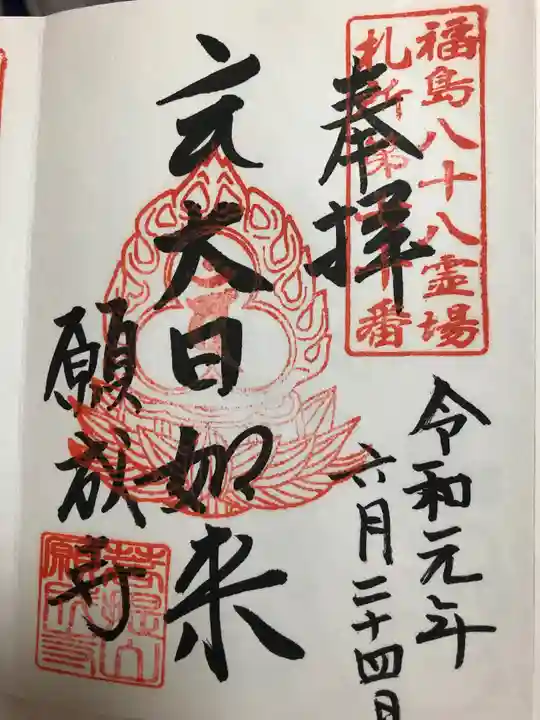 福島八十八霊場
札所第
番
奉拝
令和元年
六月二十四日
大日如来
願成寺